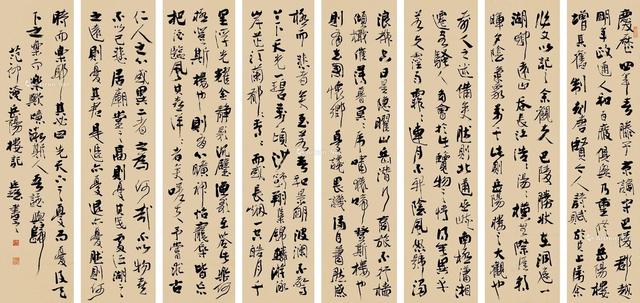 慶曆四年春滕子京謫守巴陵郡越
明年政通人和百廢具興乃重脩岳陽樓
增其舊制刻唐賢今人詩賦於其上屬余
作文以記之余觀夫巴陵勝狀在洞庭一
湖銜遠山吞長江浩浩湯湯橫無際涯朝
暉夕陰氣象萬千此則岳陽樓之大觀也
前人之述備矣然則北通巫峽南極瀟湘
遷客騷人多會於此覽物之情得無異乎
若夫霪雨霏霏連月不開陰風怒號濁
浪排空日星隱曜山岳潛形商旅不行檣
傾楫摧薄暮冥冥虎嘯猿啼登斯樓也
則有去國懷鄉憂讒畏譏滿目蕭然感
極而悲者矣至若春和景明波瀾不驚
上下天光一碧萬頃沙鷗翔集錦鱗游泳
岸芷汀蘭郁郁青青而或長煙一空皓月千
里浮光耀金靜影沉璧漁歌互答此樂何
極登斯樓也則有心曠神怡寵辱皆忘
把酒臨風其喜洋洋者矣嗟夫予嘗求古
仁人之心或異二者之為何哉不以物喜
不以己悲居廟堂之高則憂其民處江湖
之遠則憂其君是進亦憂退亦憂然則何
時而樂耶其曰先天下之憂而憂後天
下之樂而樂歟噫微斯人吾誰與歸
范仲淹岳陽樓記